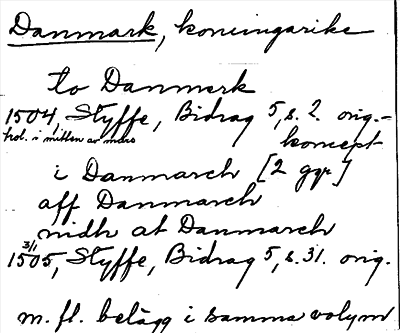 Danmark, konungarike
to Danmerk
1504, Styffe, Bidrag 5, s. 2. orig.-
hol. i mitten av mars
koncept
i Danmarch [2 ggr]
aff Danmarch
nidh at Danmarch
3/1
1505, Styffe, Bidrag 5, s. 31. orig.
m. fl. belägg i samma volym